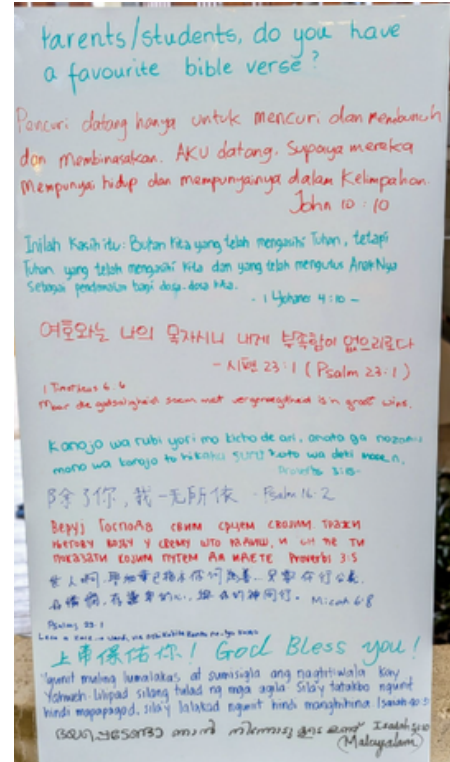 Parents/students, do you have
a favourite bible verse?
Pencuri datang hanya untuk mencuri dan membunuh
dan membinasakan. AKU datang, Supaya mereka
Mempunyai hidup dan mempunyainya dalam Kelimpahan.
John 10:10
Inilah Kasih itu: Bukan Kita yang telah mengasihi Tuhan, tetapi
Tuhan yang telah mengasihi Kita dan yang telah mengutus AnakNya
Sebagai pendamaian bagi dosa-dosa kita.
- 1 Yohanes 4:10 -
여호와는 나의 목자시니 내게 부족함이 없으리로다
- 시편 23:1 (Psalm 23:1)
1 Timoteus 6:6
Maar die godsaligheid saam met vergenoegdheid is 'n groot wins.
Kanojo wa rubi yori mo kicho de ari, anata ga nozomu
mono wa kanojo to hikaku suru koto wa deki masen.
Proverbs 3:15-
除了你,我一无所依 - Psalm 16:2
Веруј Господа свим срцем својим. тражи
његову вољу у свему што радиш, и он ће ти
показати којим путем да идете Proverbs 3:5
世人啊,耶和華已指示你何為善。只要你行公義,
好憐憫,存謙卑的心,與你的神同行。 Micah 6:8
Psalms 23:1
上帝保佑你! God Bless you!
ngunit muling lumalakas at sumisigla ang nagtitiwala kay
Yahweh. Lilipad silang tulad ng mga agila. Sila'y tatakbo ngunit
hindi mapapagod, sila'y lalakad ngunit hindi manghihina. Isaiah 40:31
ഭയപ്പെടേണ്ടാ ഞാൻ നിന്നോടുകൂടെ ഉണ്ട് Isaiah
(Malayalam)